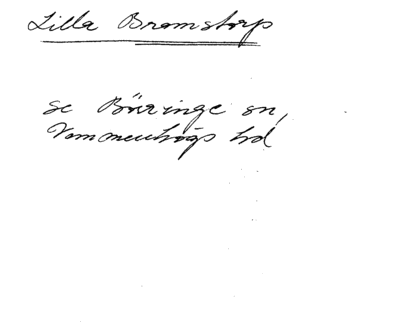 Lilla Bromstorp
se Börringe sn,
Vemmenhögs hd